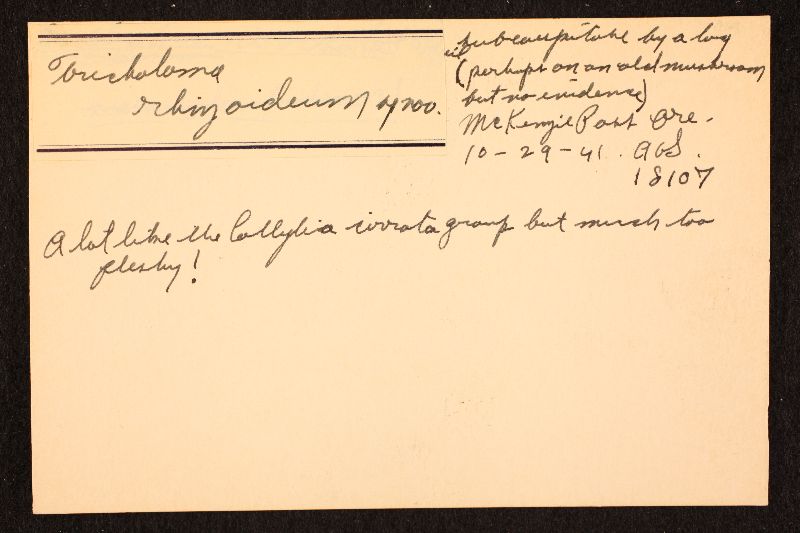 Tricholoma
rhizoideum
subcaespitose by a log
(perhaps on an old mushroom
but no evidence)
McKenzie Pass Ore.
10-29-41. AHS.
18107
A lot like the Collybia cirrata group but much too
fleshy!